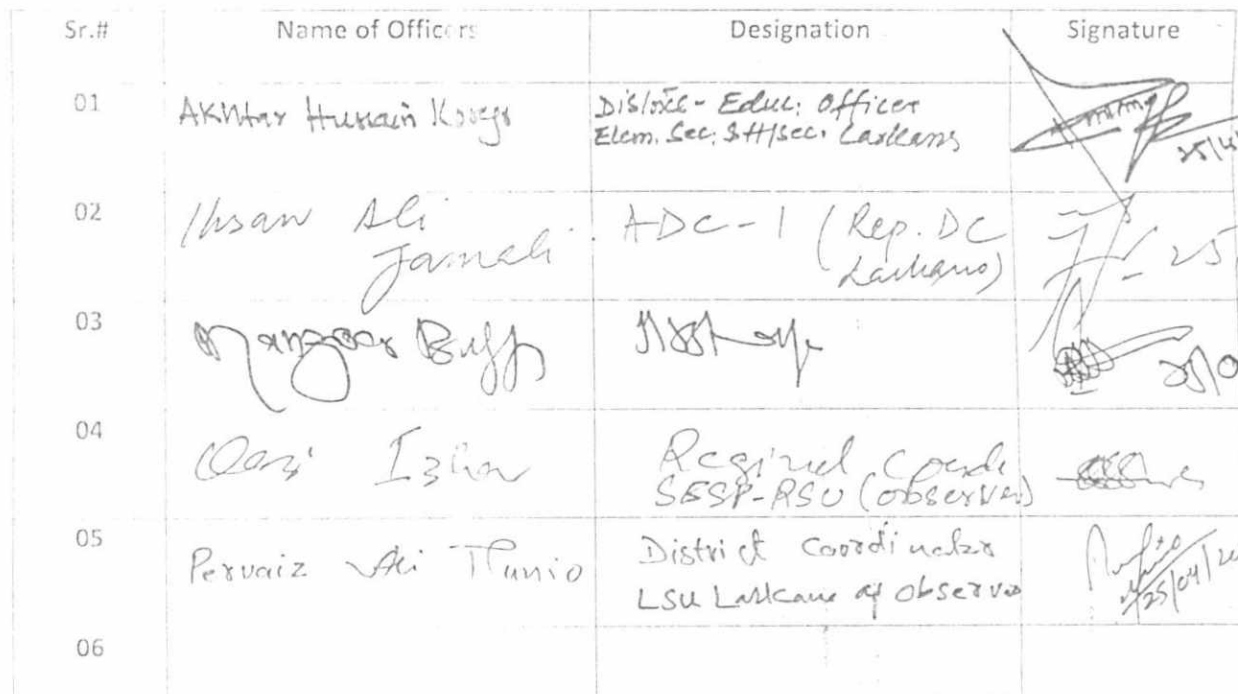 Sr.# Name of Officers Designation Signature
01 Akhtar Hussain District Educ: Officer
Elem. Sec: &H/Sec. Larkana
25/4
02 Ihsan Ali ADC-1 (Rep. DC
Jamali Larkano)
25
03 Manzoor
25/0
04 Qazi Izhar Reginel Coordi
SESP-RSU (observer)
05 Pervaiz Ali Thunio District Coordinator
LSU Larkana as observer
25/04/20
06